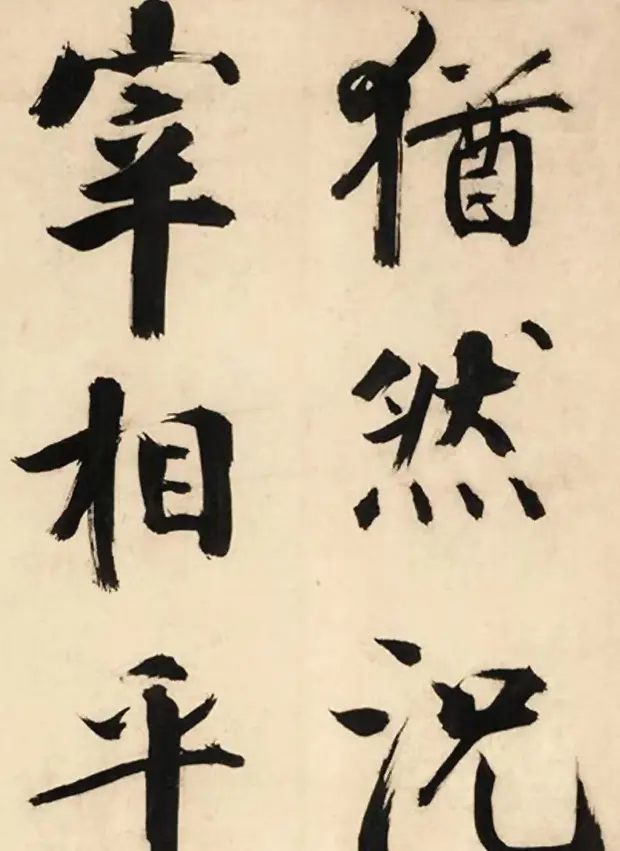 猶然況
宰相平